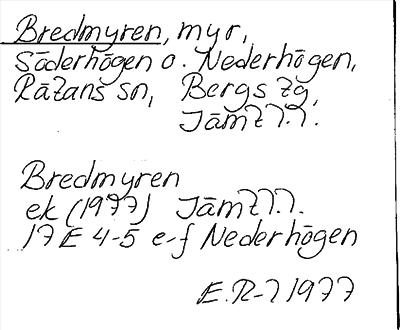 Bredmyren, myr,
Söderhögen o. Nederhögen,
Rätans sn, Bergs tg,
Jämtl.
Bredmyren
ek (1977) Jämtl.
17 E 4-5 e-f Nederhögen
E.R-l 1977